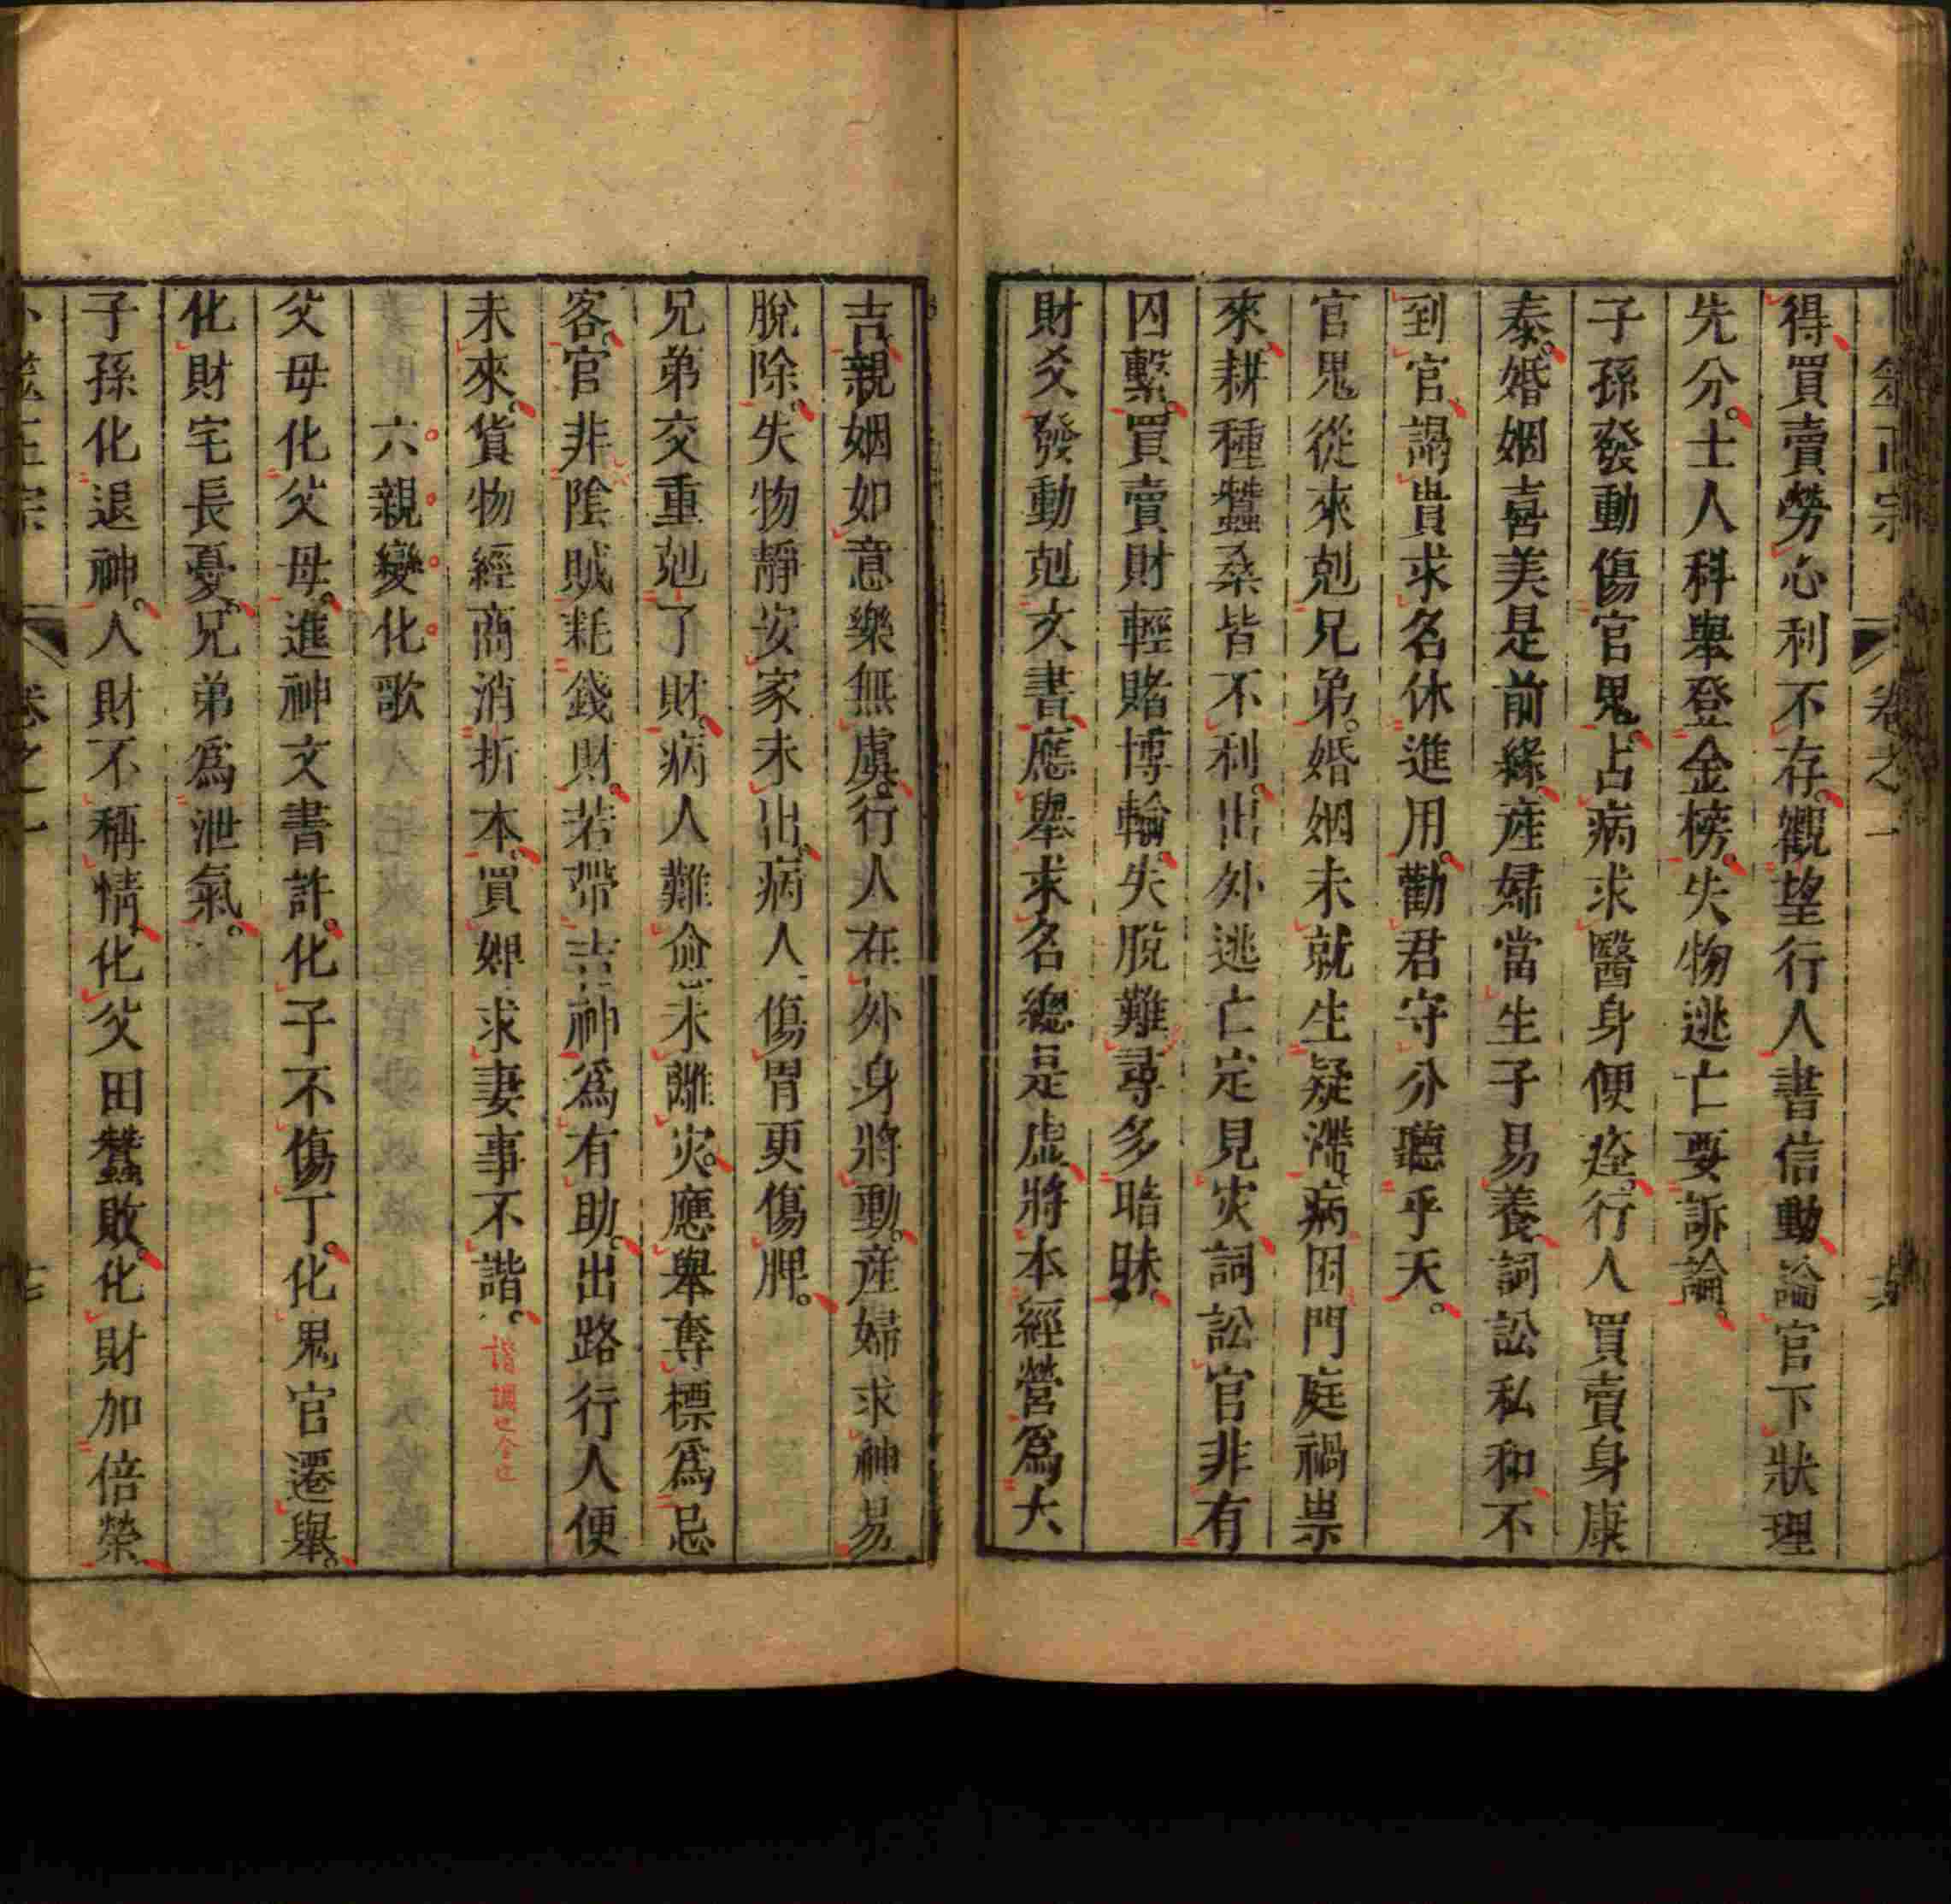 筮正宗 卷之一
得買賣勞心利不存觀望行人書信動論官下狀理
先分士人科舉登金榜失物逃亡要訴論
子孫發動傷官鬼占病求醫身便痊行人買賣身康
泰婚姻喜美是前緣產婦當生子易養詞訟私和不
到官謁貴求名休進用勸君守分聽乎天
官鬼從來剋兄弟婚姻未就生疑滯病困門庭禍祟
來耕種蠶桑皆不利出外逃亡定見灾詞訟官非有
囚繫買賣財輕賭博輸失脫難尋多暗昧
財爻發動剋文書應舉求名總是虛將本經營爲大
吉親姻如意樂無虞行人在外身將動產婦求神易
脫除失物靜安家未出病人傷胃更傷脾
兄弟交重剋了財病人難愈未離灾應舉奪標爲忌
客官非陰賊耗錢財若帶吉神爲有助出路行人便
未來貨物經商消折本買婢求妻事不諧
諧調也合也
六親變化歌
父母化父母進神文書許化子不傷丁化鬼官遷舉
化財宅長憂兄弟爲泄氣
子孫化退神人財不稱情化父田蠶敗化財加倍榮
卜筮正宗 卷之一